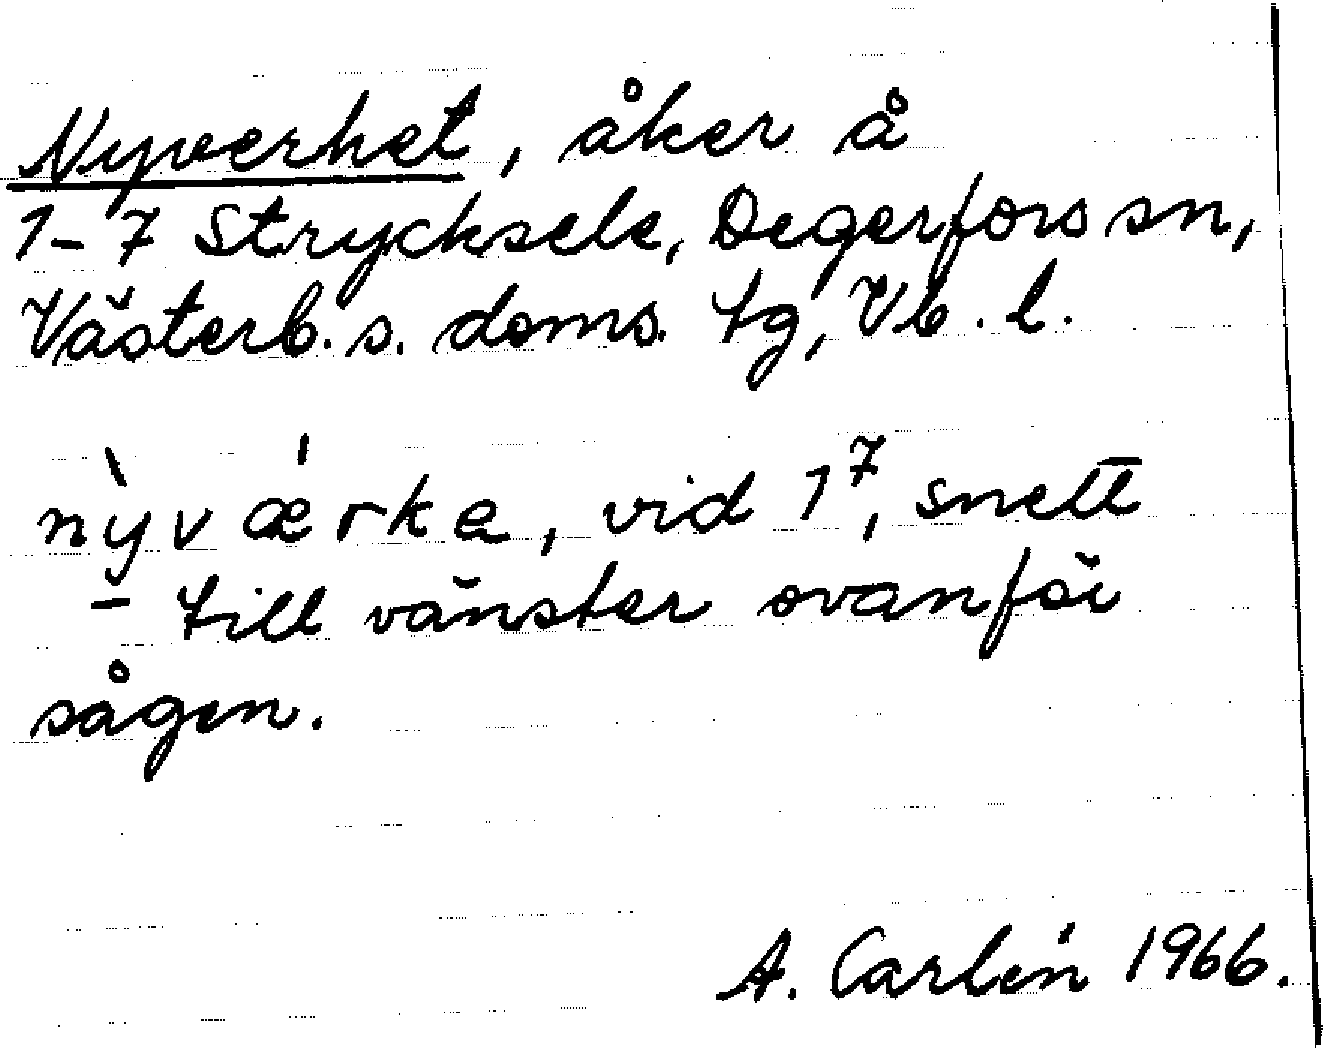 Nyverket, åker å
1-7 Strycksele, Degerfors sn,
Västerb. s. doms. tg, Vb. l.
nỳ̱vǽrka, vid 1⁷, snett
till vänster ovanför
sågen.
A. Carlén 1966.